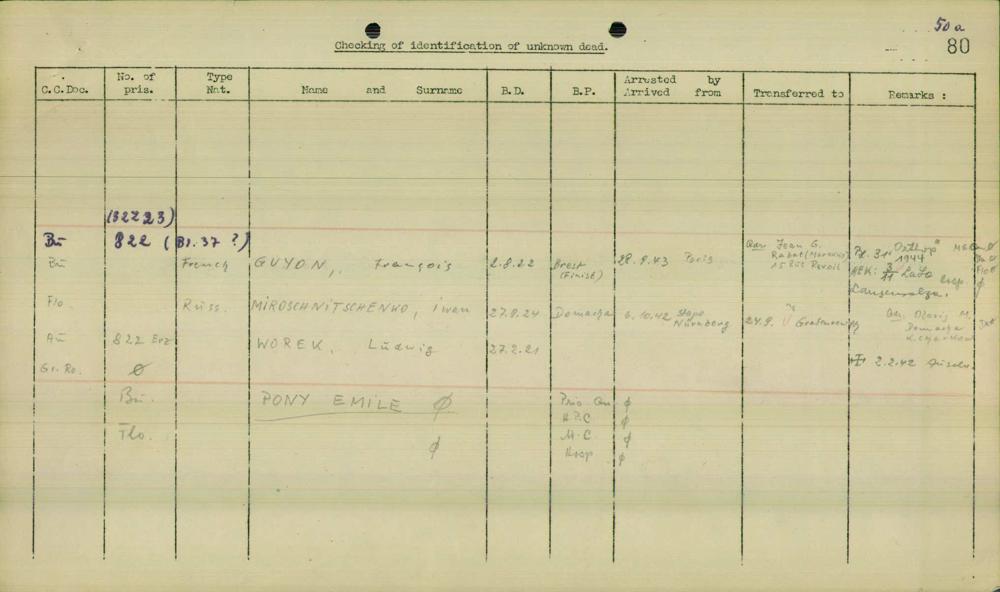 50a
80
Checking of identification of unknown dead.
C.C.Doc. No. of pris. Type Nat. Name and Surname B.D. B.P. Arrested by Arrived from Transferred to Remarks :
(32223)
Bu 822 (Bl. 37 ?)
Bu French GUYON, François 2.8.22 Brest (Finist) 28.8.43 Paris Jean G. Rabat (Marokko) 15 Rue Bl. 31 1944
AEK: Lalo
Langensalza.
Flo Russ. MIROSCHNITSCHENKO, iwan 27.9.24 Domacha 6.10.42 Stapo Nürnberg 24.9. M. Domacha
Au 822 Erz WOREK, Ludwig 27.2.21
2.2.42
Gr. Ro. ø
Bu. PONY EMILE ø Pris. Qu ø
H.P.C ø
Flo. ø M.C. ø
Hosp ø